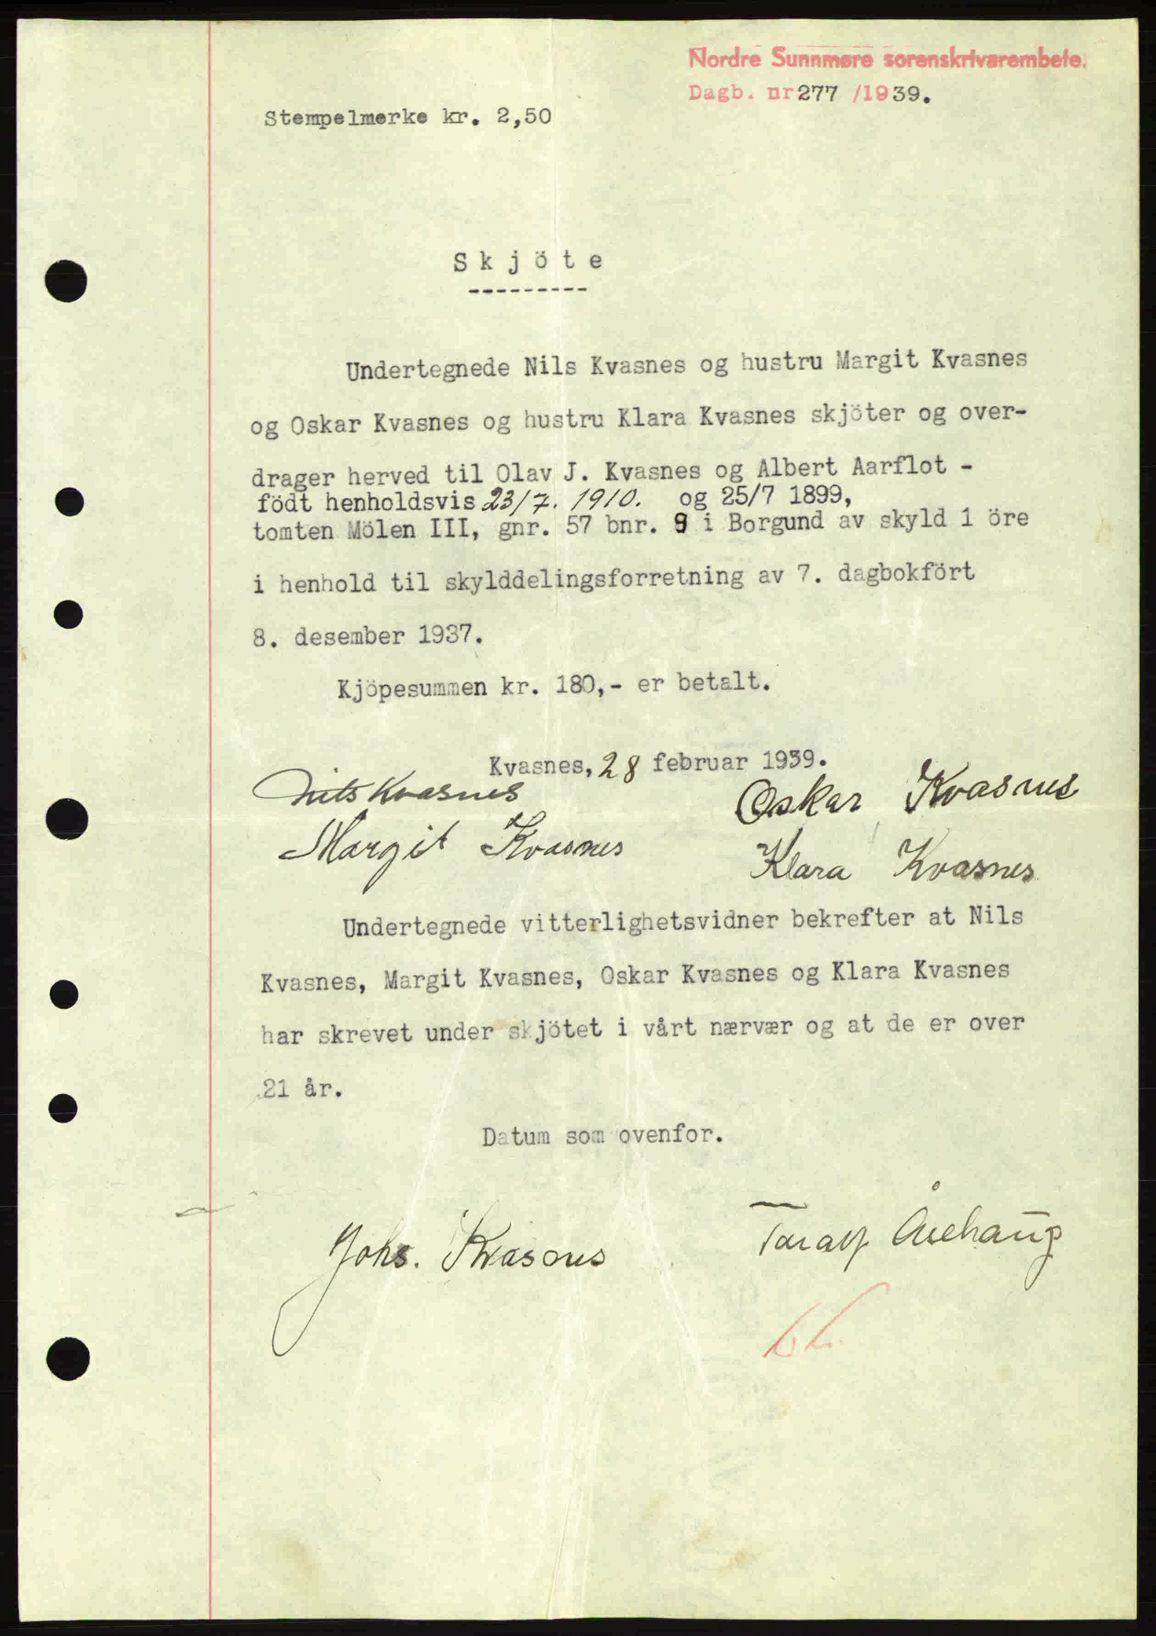 Nordre Sunnmøre sorenskrivarembete.
Dagb. nr 277 /1939.
Stempelmerke kr. 2,50
Skjöte
Undertegnede Nils Kvasnes og hustru Margit Kvasnes
og Oskar Kvasnes og hustru Klara Kvasnes skjöter og over-
drager herved til Olav J. Kvasnes og Albert Aarflot -
födt henholdsvis 23/7. 1910. og 25/7 1899,
tomten Mölen III, gnr. 57 bnr. 9 i Borgund av skyld 1 öre
i henhold til skylddelingsforretning av 7. dagbokfört
8. desember 1937.
Kjöpesummen kr. 180,- er betalt.
Kvasnes, 28 februar 1939.
Nils Kvasnes Oskar Kvasnes
Margit Kvasnes Klara Kvasnes
Undertegnede vitterlighetsvidner bekrefter at Nils
Kvasnes, Margit Kvasnes, Oskar Kvasnes og Klara Kvasnes
har skrevet under skjötet i vårt nærvær og at de er over
21 år.
Datum som ovenfor.
Johs. Kvasnes